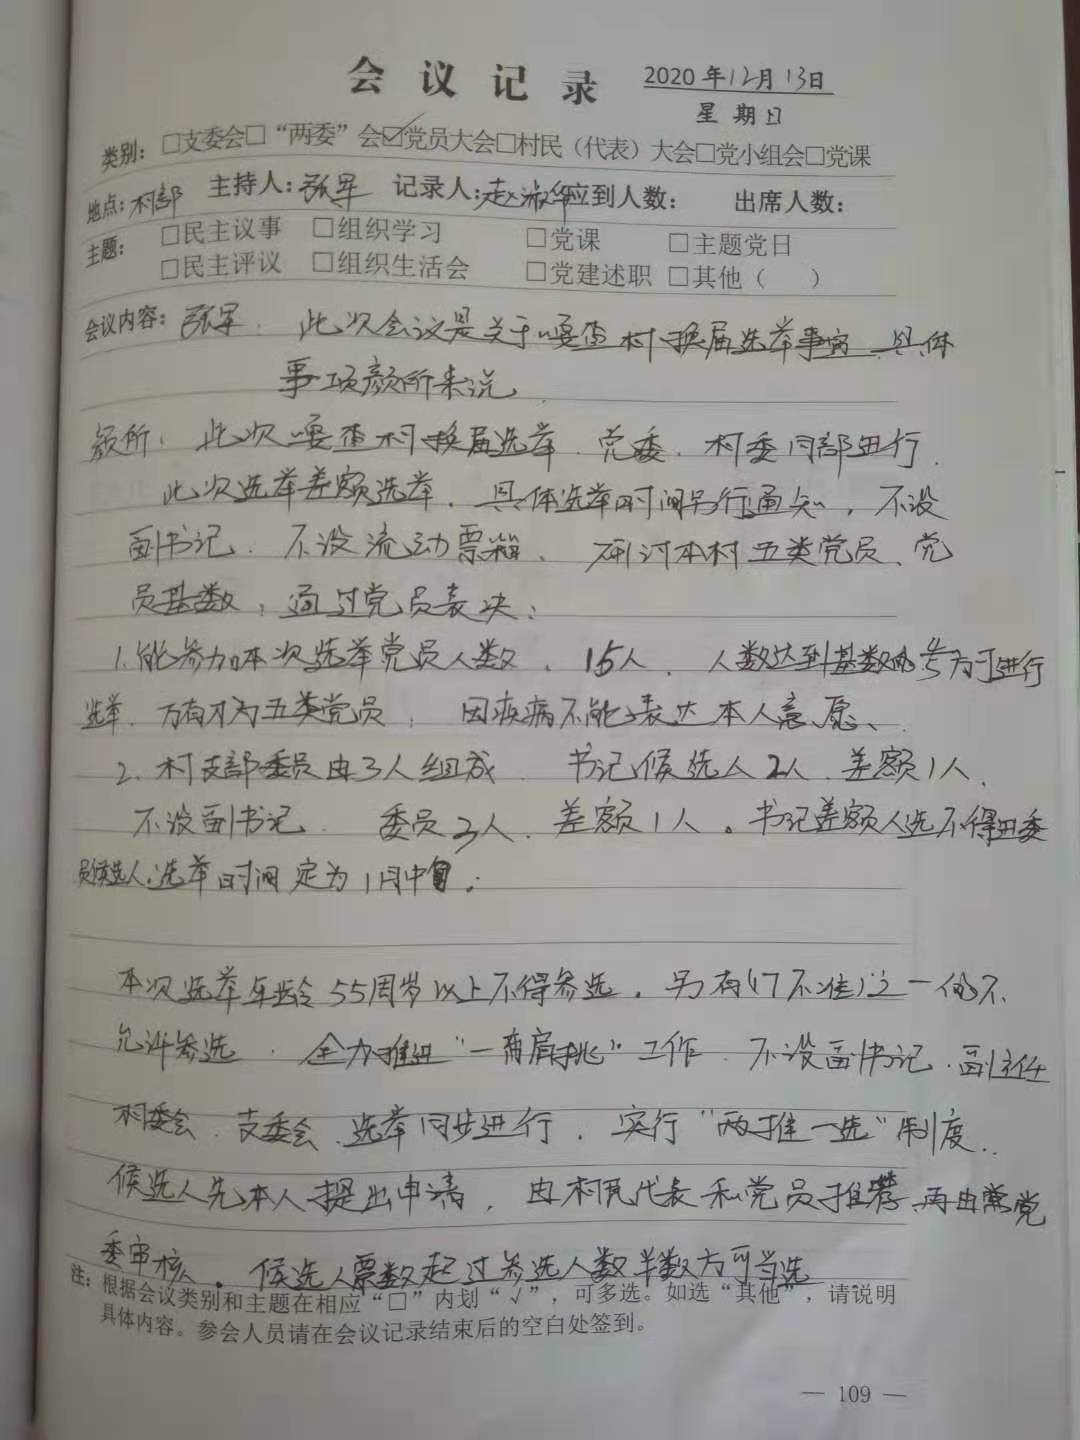 会议记录 2020年12月13日
星期日
类别：□支委会□“两委”会☑党员大会□村民（代表）大会□党小组会□党课
地点：村部 主持人：张军 记录人：赵淑华 应到人数： 出席人数：
主题： □民主议事 □组织学习 □党课 □主题党日
□民主评议 □组织生活会 □党建述职 □其他（ ）
会议内容：张军：此次会议是关于嘎查村换届选举事宜 具体
事项颜所来说
颜所：此次嘎查村换届选举．党委．村委同部进行．
此次选举差额选举．具体选举时间另行通知，不设
副书记．不设流动票箱．研讨本村五类党员、党
员基数，通过党员表决：
1.能参加本次选举党员人数．15人．人数达到基数的⅘方可进行
选举． 为五类党员， 因疾病不能表达本人意愿、
2.村支部委员由3人组成 书记候选人2人．差额1人．
不设副书记． 委员3人．差额1人。书记差额人选不得 委
员候选人．选举时间定为1月中旬．
本次选举年龄55周岁以上不得参选．另有17不准 一律不
允许参选．全力推进“一肩挑”工作．不设副书记．副主任
村委会．支委会．选举同步进行．实行“两推一选”制度．
候选人先本人提出申请，由村民代表和党员推荐．再由 党
委审核．候选人票数起过参选人数半数方可当选
注：根据会议类别和主题在相应“□”内划“√”，可多选。如选“其他”，请说明
具体内容。参会人员请在会议记录结束后的空白处签到。
— 109 —